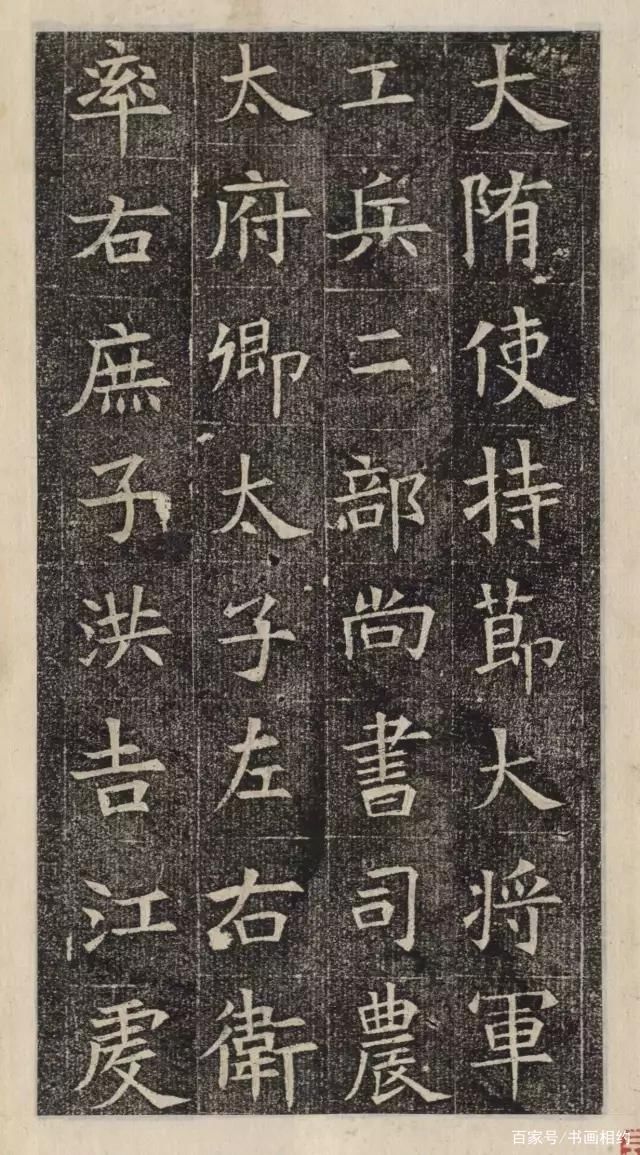 大隋使持節大将軍
工兵二部尚書司農
太府卿太子左右衛
率右庶子洪吉江虔
百家号/书画相约